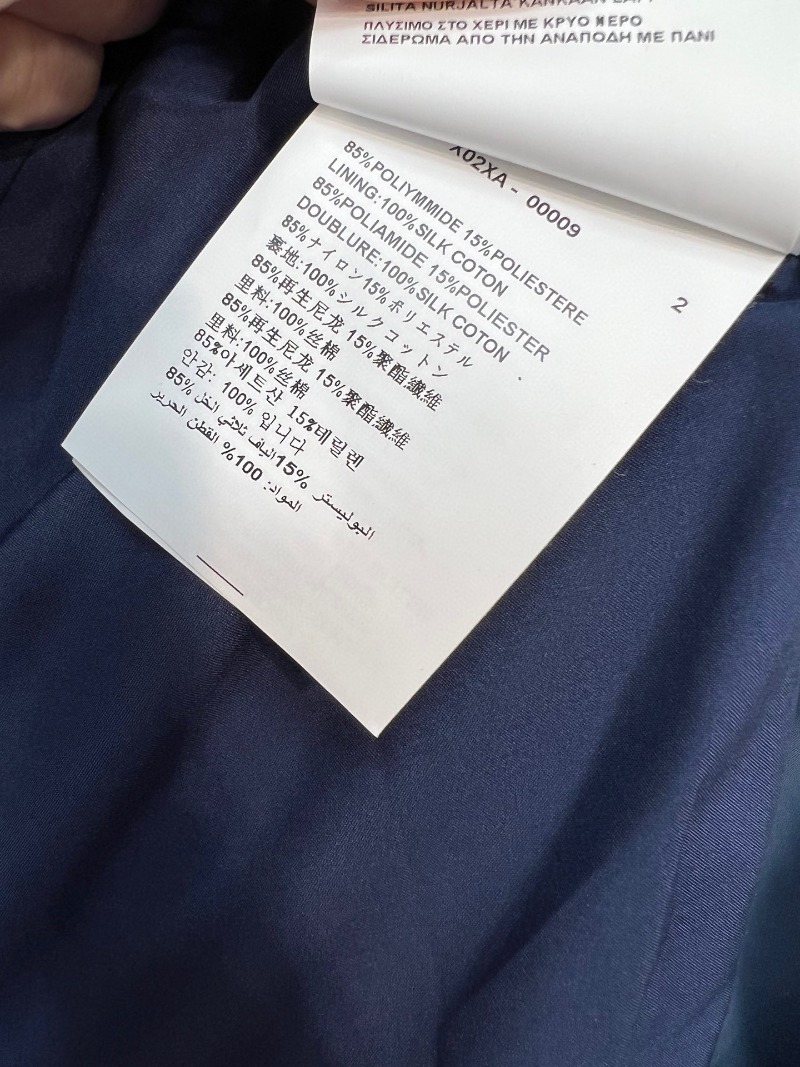 SILITA NURJALTA KANKAAN
ΠΛΥΣΙΜΟ ΣΤΟ ΧΕΡΙ ΜΕ ΚΡΥΟ ΝΕΡΟ
ΣΙΔΕΡΩΜΑ ΑΠΟ ΤΗΝ ΑΝΑΠΟΔΗ ΜΕ ΠΑΝΙ
X02XA - 00009
2
85%POLIYMMIDE 15%POLIESTERE
LINING:100%SILK COTON
85%POLIAMIDE 15%POLIESTER
DOUBLURE:100%SILK COTON
85%ナイロン15%ポリエステル
裏地:100%シルクコットン
85%再生尼龙 15%聚酯纖維
里料:100%丝棉
85%再生尼龙 15%聚酯纖維
里料:100%丝棉
85%아세트산 15%테릴렌
안감: 100% 입니다
85% الياف ثلاثي الخل 15% البوليستر
المواد: 100% القطن الحرير